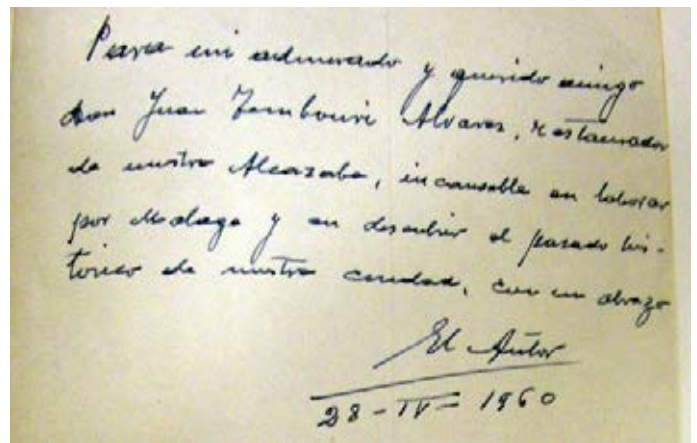 Para mi admirado y querido amigo
don Juan Temboury Alvarez, restaurador
de nuestra Alcazaba, incansable en laborar
por Malaga y en descubrir el pasado his-
torico de nuestra ciudad, con un abrazo
El Autor
28-IV-1960